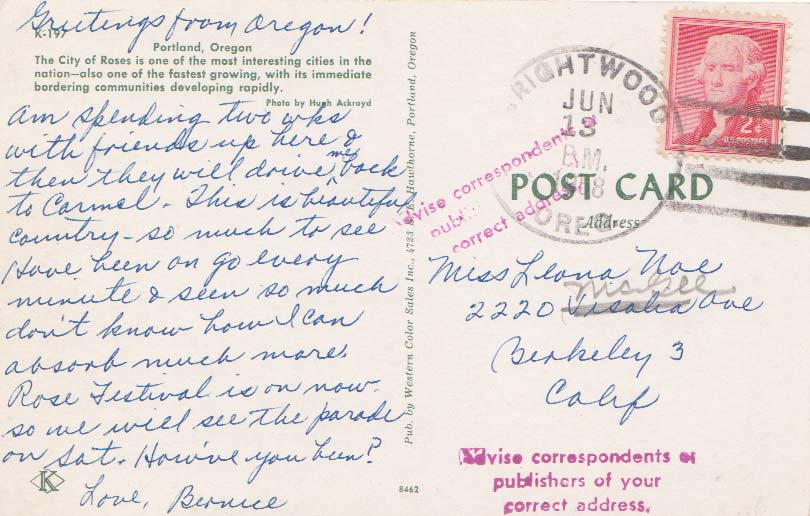 Greetings from Oregon!
K-197
Portland, Oregon
The City of Roses is one of the most interesting cities in the
nation—also one of the fastest growing, with its immediate
bordering communities developing rapidly.
Photo by Hugh Ackroyd
Am spending two wks
with friends up here &
then they will drive me back
to Carmel. This is beautiful
country - so much to see
Have been on go every
minute & seen so much
don't know how I can
absorb much more.
Rose Festival is on now.
so we will see the parade
on Sat. How've you been?
Love, Bernice
Pub. by Western Color Sales Inc., 4723 S.E. Hawthorne, Portland, Oregon
8462
BRIGHTWOOD
JUN
13
OREG.
2¢
U.S. POSTAGE
Advise correspondents
publ
correct address
POST CARD
Address
Miss Leona Noe
McGee
2220 Visalia Ave
Berkeley 3
Calif
Advise correspondents or
publishers of your
correct address.